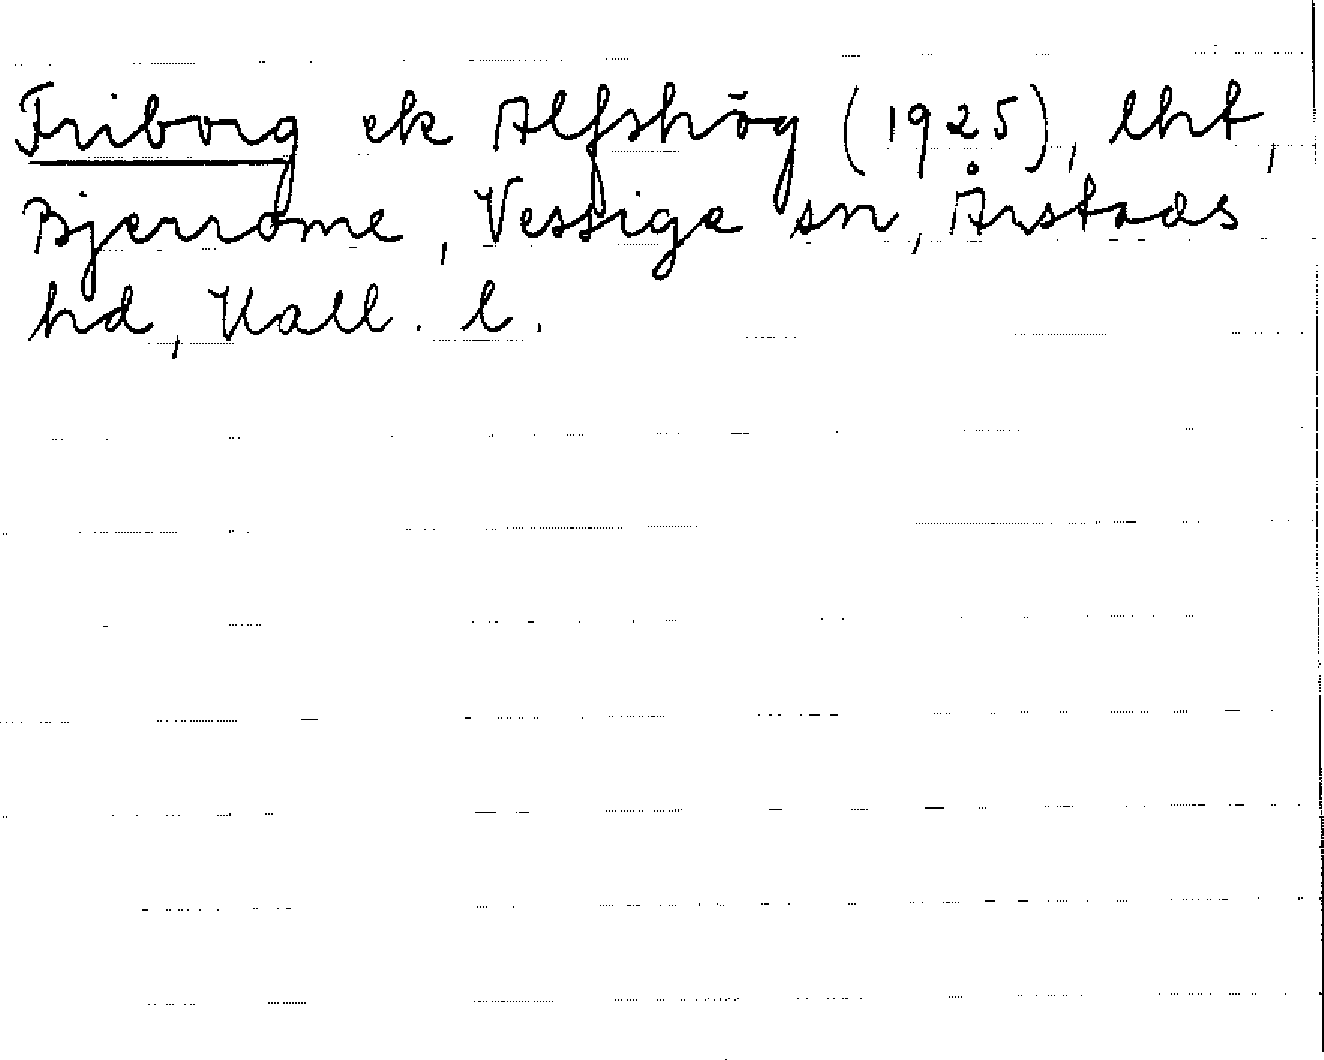 Friborg ek Alfshög (1925), lht,
Bjerrome, Vessige sn, Årstads
hd, Hall. l.